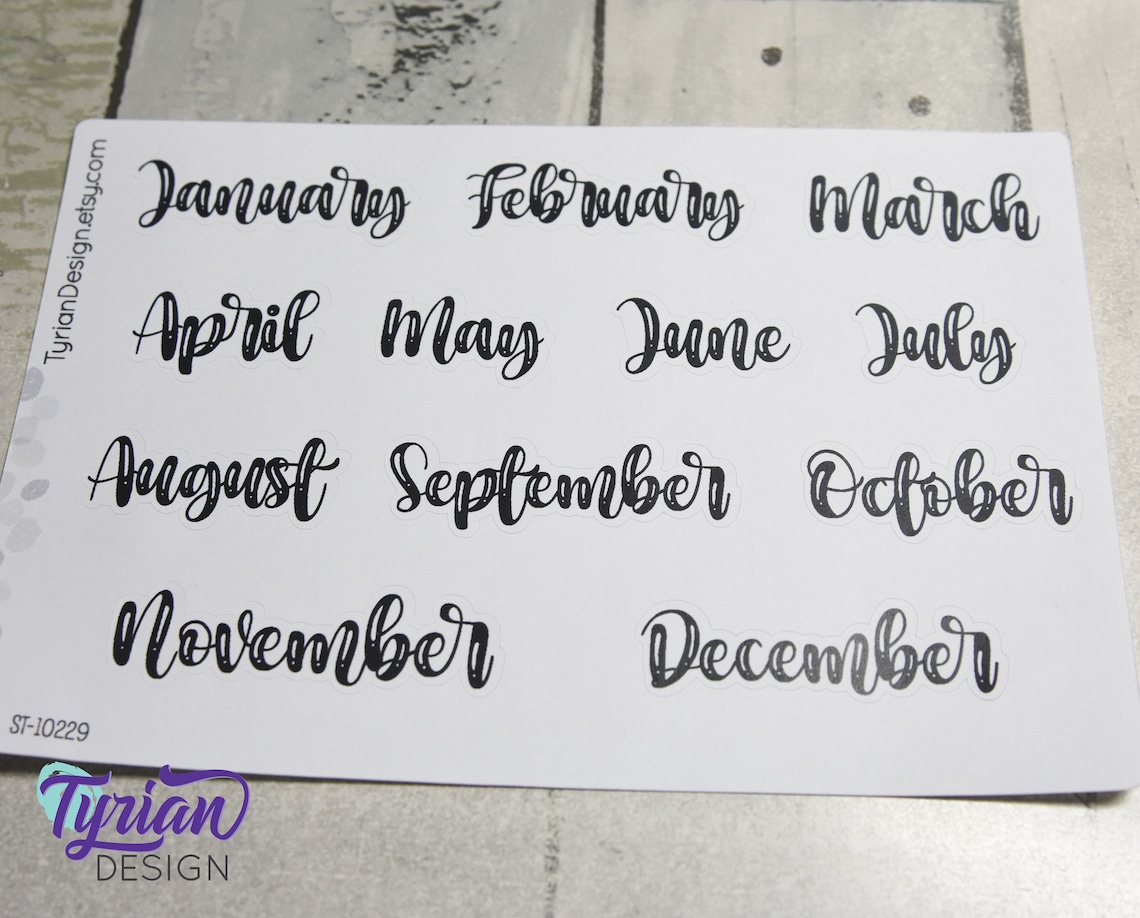 TyrianDesign.etsy.com
January February March
April May June July
August September October
November December
ST-10229
Tyrian
DESIGN